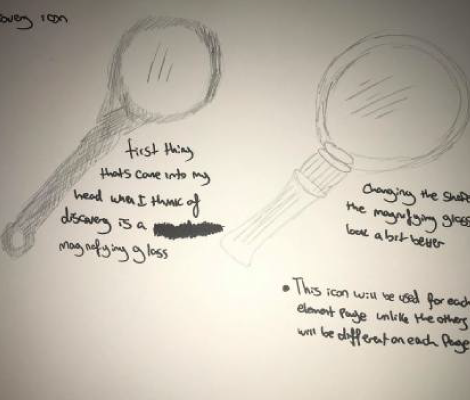 icon
first thing
that's come into my
head when I think of
discovery is a
magnifying glass
Changing the shape
the magnifying glass
look a bit better
• This icon will be used for each
element page unlike the others
will be different on each page